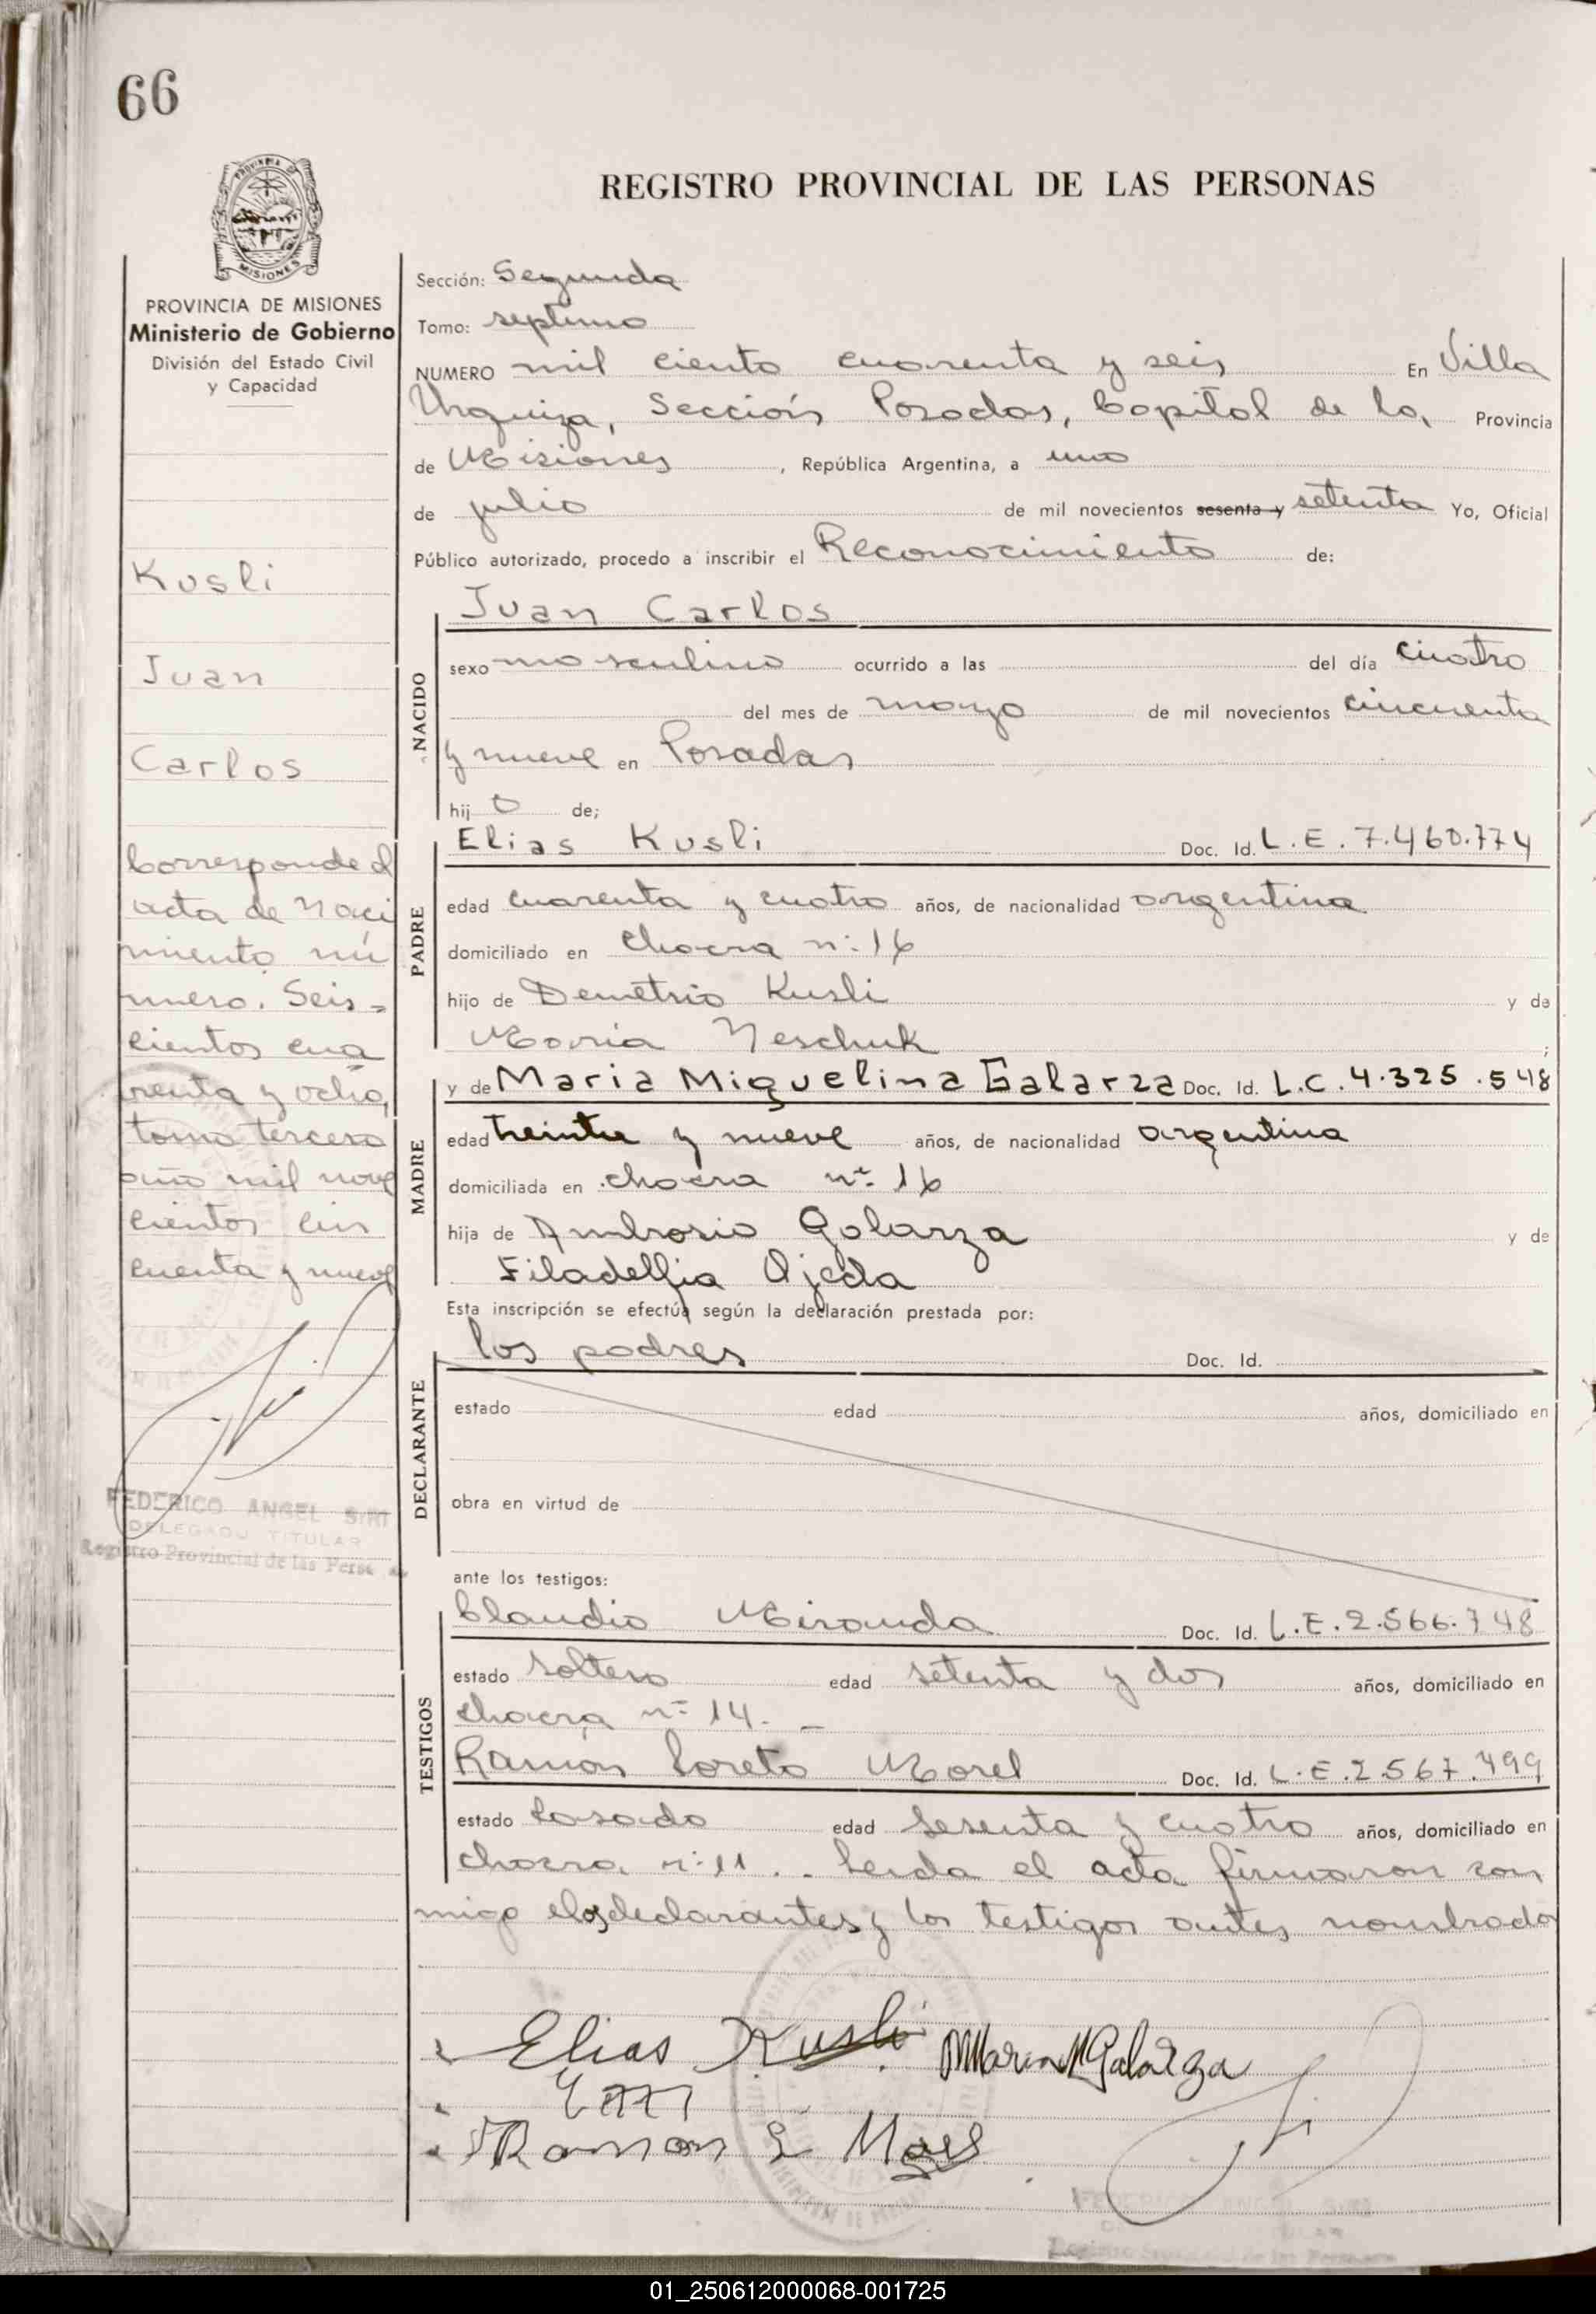 66
PROVINCIA
MISIONES
REGISTRO PROVINCIAL DE LAS PERSONAS
PROVINCIA DE MISIONES
Ministerio de Gobierno
División del Estado Civil
y Capacidad
Kusli
Juan
Carlos
Corresponde al
acta de Naci
miento nú
mero. Seis=
cientos cua
renta y ocho,
tomo tercero
año mil nove
cientos cin
cuenta y nueve
FEDERICO ANGEL SIRI
DELEGADO TITULAR
Registro Provincial de las Perso
Sección: Segunda
Tomo: septimo
NUMERO mil ciento cuarenta y seis En Villa
Urquiza, Sección Posadas, Capital de la, Provincia
de Misiones, República Argentina, a uno
de julio de mil novecientos sesenta y setenta Yo, Oficial
Público autorizado, procedo a inscribir el Reconocimiento de:
NACIDO
Juan Carlos
sexo masculino ocurrido a las del día cuatro
del mes de marzo de mil novecientos cincuenta
y nueve en Posadas
hijo de;
PADRE
Elias Kusli Doc. Id. L.E. 7.460.774
edad cuarenta y cuatro años, de nacionalidad argentina
domiciliado en chacra n: 16
hijo de Demetrio Kusli y de
Maria Neschuk ;
MADRE
y de Maria Miguelina Galarza Doc. Id. L.C. 4.325.548
edad treinta y nueve años, de nacionalidad argentina
domiciliada en chacra n: 16
hija de Ambrosio Galarza y de
Filadelfia Ojeda
Esta inscripción se efectúa según la declaración prestada por:
DECLARANTE
los padres Doc. Id.
estado edad años, domiciliado en
obra en virtud de
ante los testigos:
TESTIGOS
Claudio Miranda Doc. Id. L.E. 2.566.748
estado soltero edad setenta y dos años, domiciliado en
chacra n: 14. _
Ramón Loreto Morel Doc. Id. L.E. 2.567.499
estado casado edad sesenta y cuatro años, domiciliado en
chacra n: 11 . - Leida el acta firmaron con
migo los declarantes y los testigos antes nombrados
Elias Kusli MMaria M Galarza
Ramon L Morel
FEDERICO ANGEL SIRI
01_250612000068-001725